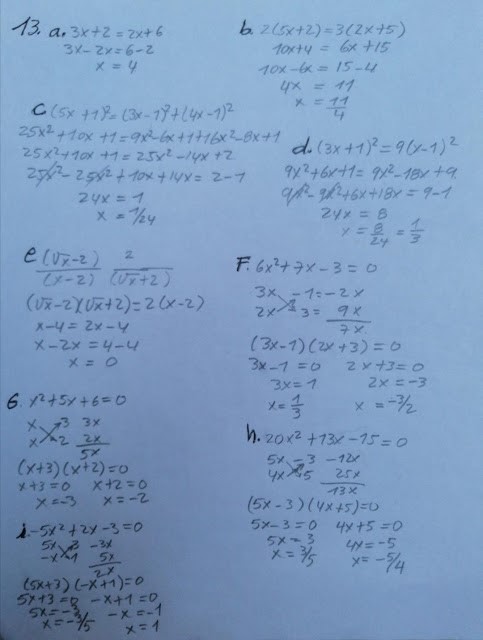 13. a. 3x+2=2x+6
3x-2x=6-2
x=4
b. 2(5x+2)=3(2x+5)
10x+4 = 6x+15
10x-6x = 15-4
4x = 11
x = 11/4
C (5x+1)²=(3x-1)²+(4x-1)²
25x²+10x+1=9x²-6x+1+16x²-8x+1
25x²+10x+1=25x²-14x+2
25x²-25x²+10x+14x=2-1
24x=1
x=1/24
d. (3x+1)²=9(x-1)²
9x²+6x+1=9x²-18x+9
9x²-9x²+6x+18x=9-1
24x=8
x=8/24=1/3
e (√x-2)/(x-2) 2/(√x+2)
(√x-2)(√x+2)=2(x-2)
x-4=2x-4
x-2x=4-4
x=0
F. 6x²+7x-3=0
3x -1=-2x
2x 3= 9x
7x
(3x-1)(2x+3)=0
3x-1=0 2x+3=0
3x=1 2x=-3
x=1/3 x=-3/2
G. x²+5x+6=0
x 3 3x
x 2 2x
5x
(x+3)(x+2)=0
x+3=0 x+2=0
x=-3 x=-2
h. 20x²+13x-15=0
5x -3 -12x
4x 5 25x
13x
(5x-3)(4x+5)=0
5x-3=0 4x+5=0
5x=3 4x=-5
x=3/5 x=-5/4
i. -5x²+2x-3=0
5x 3 -3x
-x 1 5x
2x
(5x+3)(-x+1)=0
5x+3=0 -x+1=0
5x=-3 -x=-1
x=-3/5 x=1